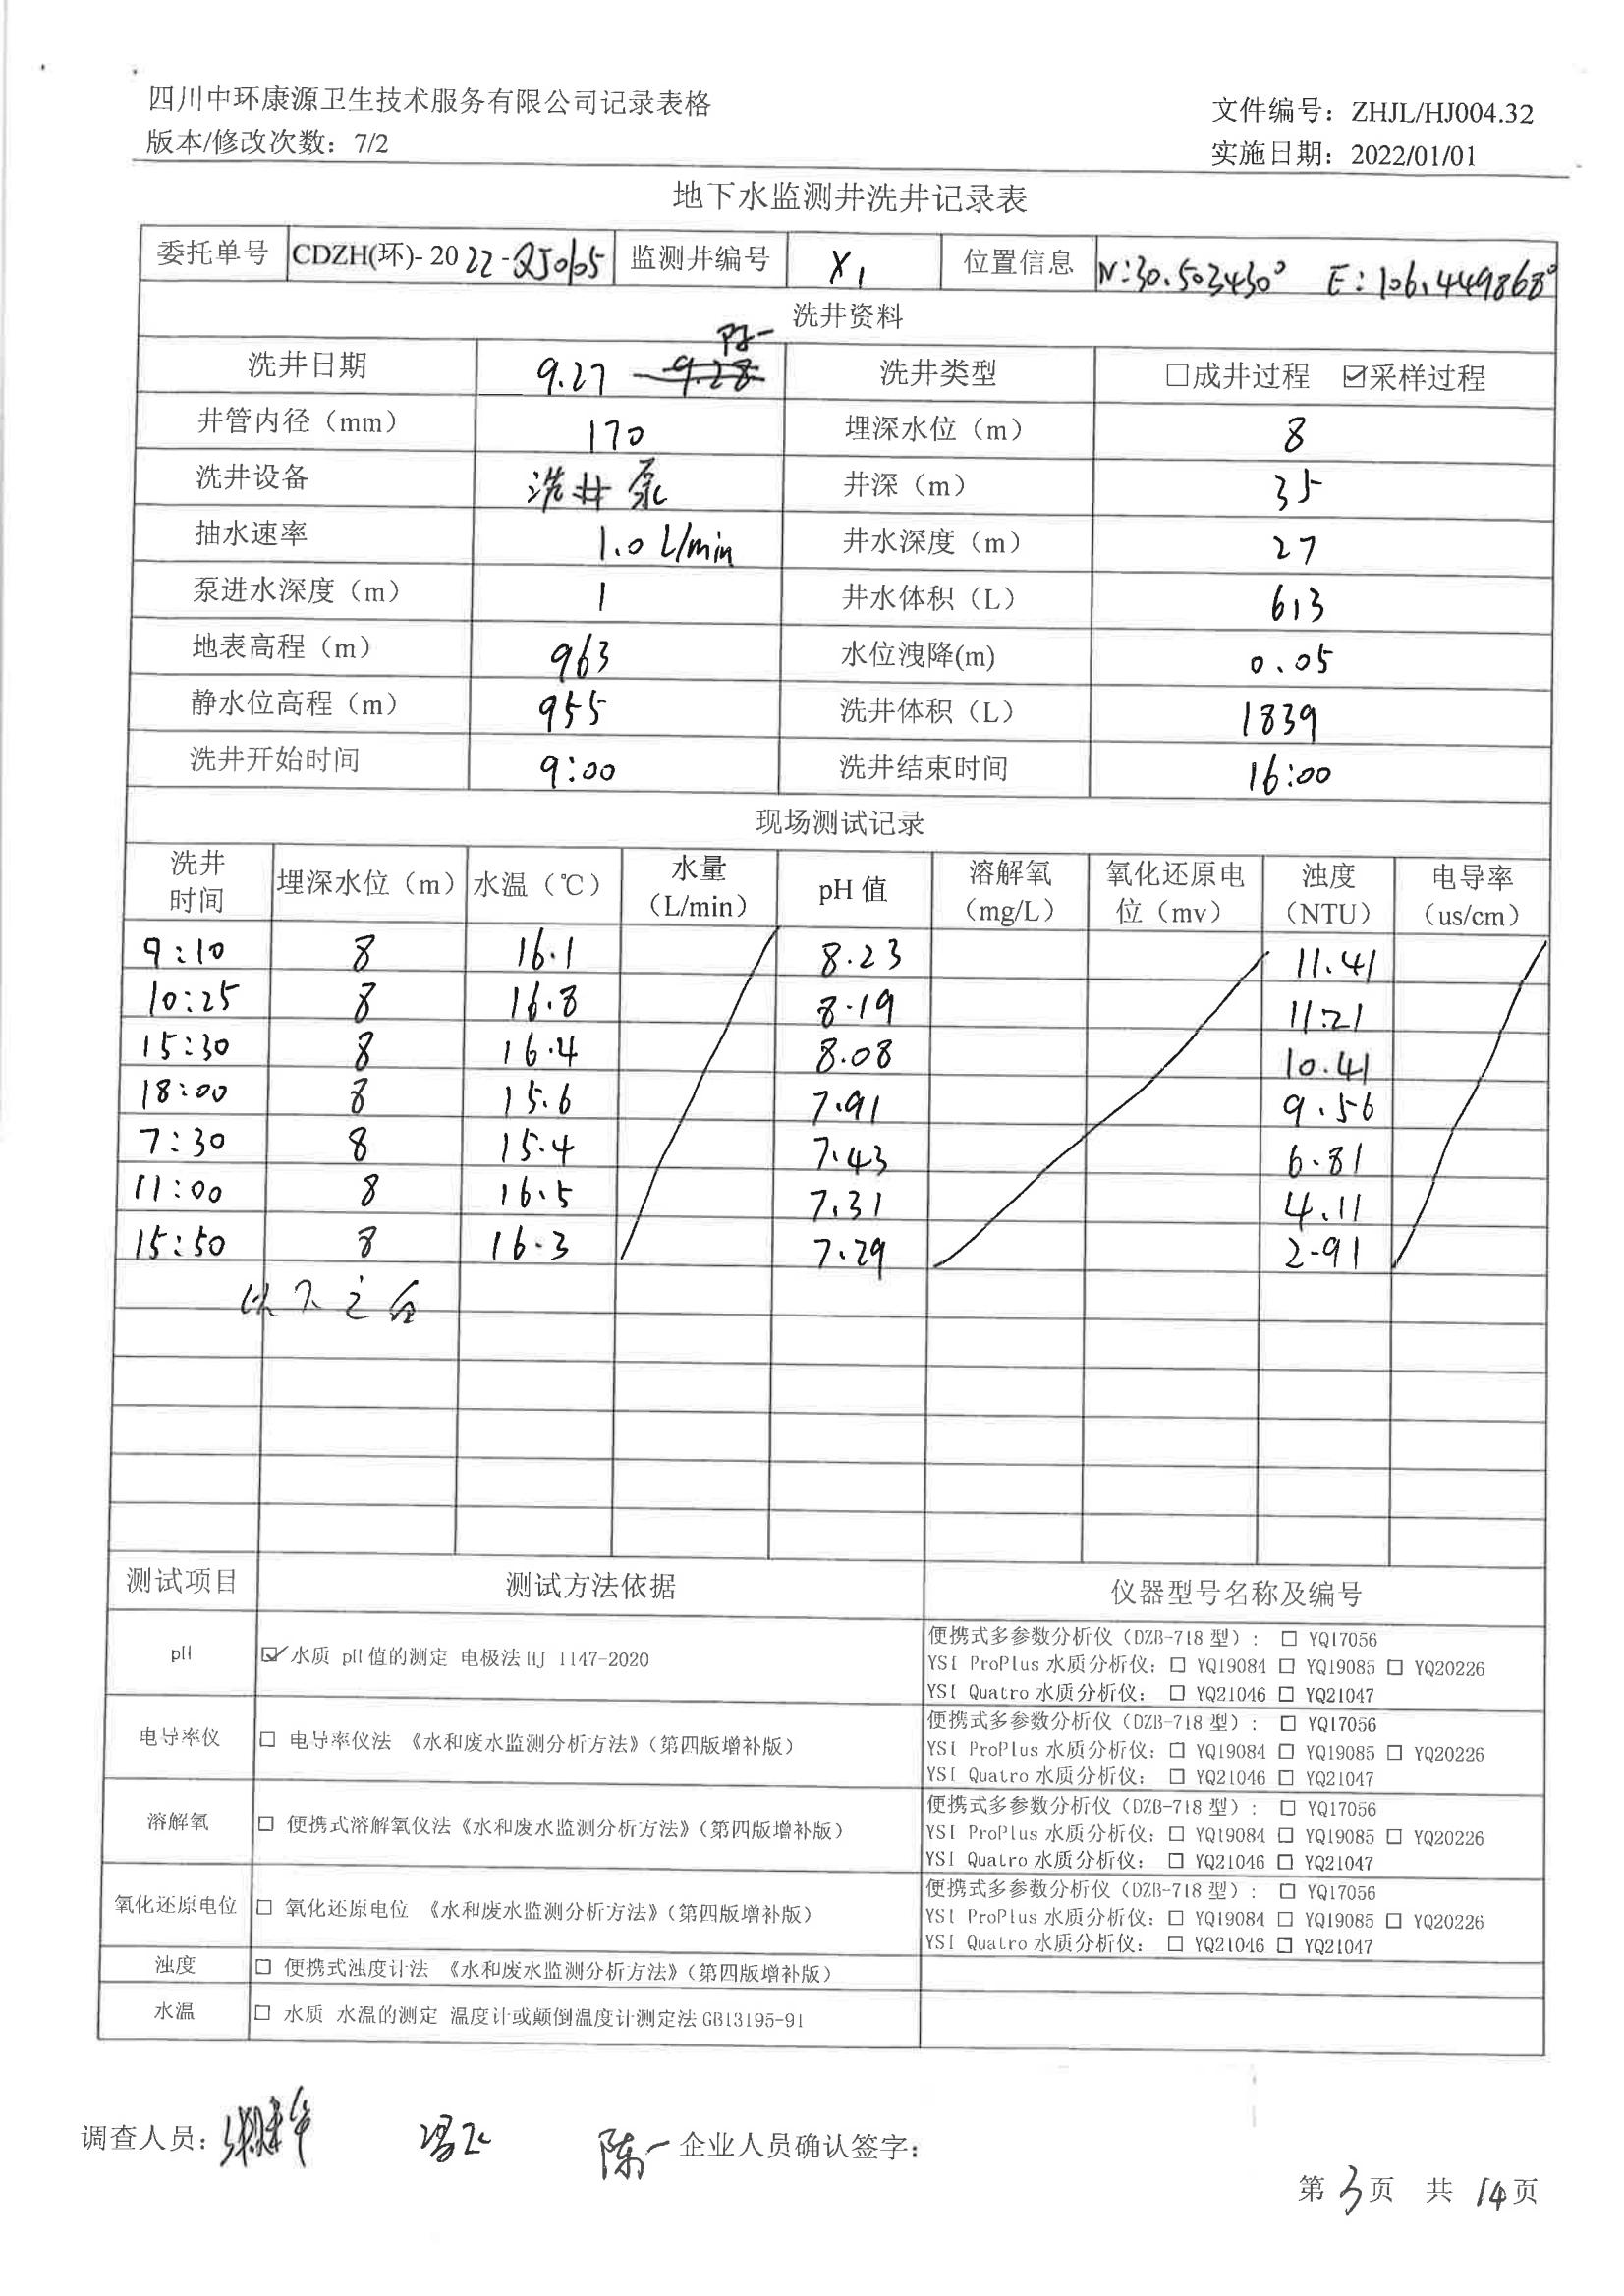 四川中环康源卫生技术服务有限公司记录表格
文件编号：ZHJL/HJ004.32
版本/修改次数：7/2
实施日期：2022/01/01
地下水监测井洗井记录表
委托单号 CDZH(环)- 2022-QJ0105 监测井编号 X1 位置信息 N:30.503430° E:106.449868°
洗井资料
洗井日期 9.27 —9.28 陈一 洗井类型 □成井过程 ☑采样过程
井管内径（mm） 170 埋深水位（m） 8
洗井设备 洗井泵 井深（m） 35
抽水速率 1.0 L/min 井水深度（m） 27
泵进水深度（m） 1 井水体积（L） 613
地表高程（m） 963 水位洩降(m) 0.05
静水位高程（m） 955 洗井体积（L） 1839
洗井开始时间 9:00 洗井结束时间 16:00
现场测试记录
洗井时间 埋深水位（m） 水温（℃） 水量（L/min） pH 值 溶解氧（mg/L） 氧化还原电位（mv） 浊度（NTU） 电导率（us/cm）
9:10 8 16.1 8.23 11.41
10:25 8 16.8 8.19 11.21
15:30 8 16.4 8.08 10.41
18:00 8 15.6 7.91 9.56
7:30 8 15.4 7.43 6.81
11:00 8 16.5 7.31 4.11
15:50 8 16.3 7.29 2.91
以下空白
测试项目 测试方法依据 仪器型号名称及编号
pH ☑水质 pH 值的测定 电极法 HJ 1147-2020
便携式多参数分析仪（DZB-718 型）： □ YQ17056
YSI ProPlus 水质分析仪：□ YQ19084 □ YQ19085 □ YQ20226
YSI Quatro 水质分析仪： □ YQ21046 □ YQ21047
电导率仪 □ 电导率仪法 《水和废水监测分析方法》（第四版增补版）
便携式多参数分析仪（DZB-718 型）： □ YQ17056
YSI ProPlus 水质分析仪：□ YQ19084 □ YQ19085 □ YQ20226
YSI Quatro 水质分析仪： □ YQ21046 □ YQ21047
溶解氧 □ 便携式溶解氧仪法《水和废水监测分析方法》（第四版增补版）
便携式多参数分析仪（DZB-718 型）： □ YQ17056
YSI ProPlus 水质分析仪：□ YQ19084 □ YQ19085 □ YQ20226
YSI Quatro 水质分析仪： □ YQ21046 □ YQ21047
氧化还原电位 □ 氧化还原电位 《水和废水监测分析方法》（第四版增补版）
便携式多参数分析仪（DZB-718 型）： □ YQ17056
YSI ProPlus 水质分析仪：□ YQ19084 □ YQ19085 □ YQ20226
YSI Quatro 水质分析仪： □ YQ21046 □ YQ21047
浊度 □ 便携式浊度计法 《水和废水监测分析方法》（第四版增补版）
水温 □ 水质 水温的测定 温度计或颠倒温度计测定法 GB13195-91
调查人员： 冯飞 陈一 企业人员确认签字：
第 3 页 共 14 页